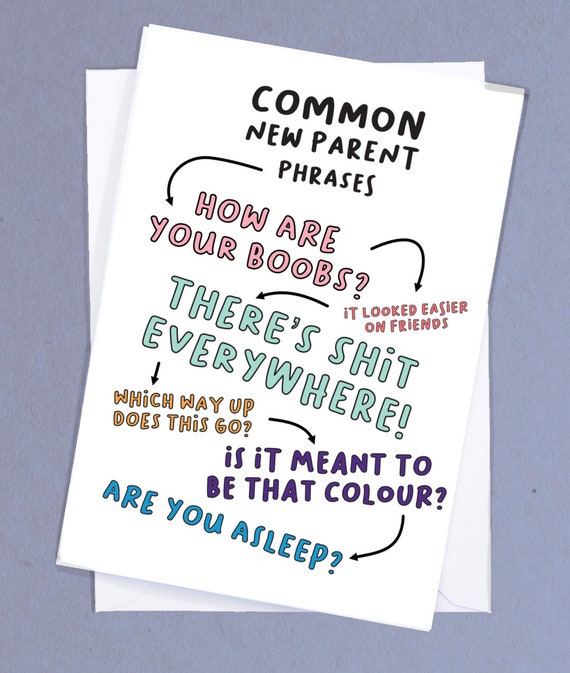 COMMON
NEW PARENT
PHRASES
HOW ARE
YOUR BOOBS?
iT LOOKED EASiER
ON FRiENDS
THERE'S SHiT
EVERYWHERE!
WHiCH WAY UP
DOES THiS GO?
iS iT MEANT TO
BE THAT COLOUR?
ARE YOU ASLEEP?